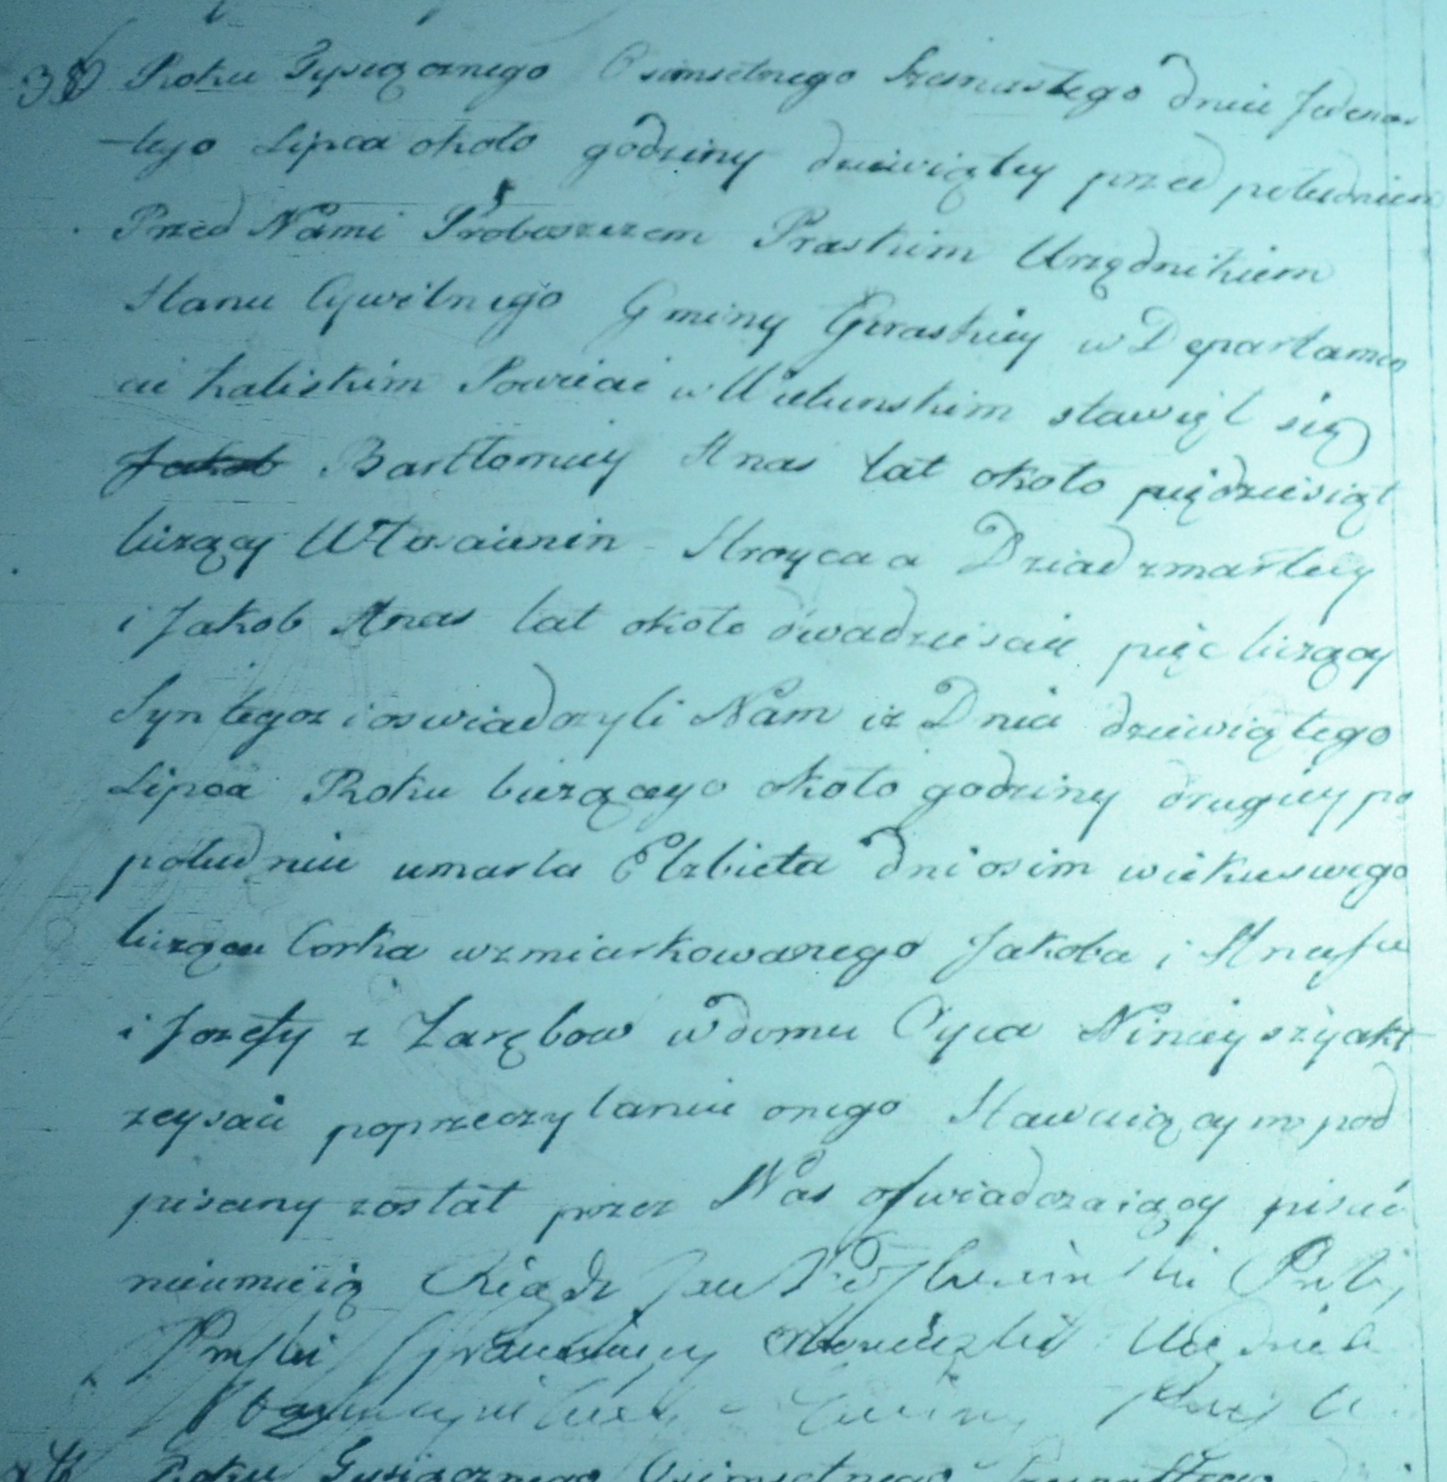 Roku Tysiącznego Osimsetnego Szesnastego dnia Jedenas
-tego Lipca około godziny dziewiątey przed południem
Przed Nami Proboszczem Praskim Urzędnikiem
Stanu Cywilnego Gminy Praskiey w Departamen
cie Kaliskim Powiecie w Wielunskim stawiął się
Jakob Bartłomiey Knas lat około pięдziesiąt
liczący Włoscianin Stryca a Dziad zmarłey
i Jakob Knas lat około dwadziescie pięc liczący
Syn tegoz i oswiadczyli Nam iz Dnia dziewiątego
Lipca Roku bieżącego około godziny drugiey po
południu umarła Elzbieta dni osim wieku swego
licząca Corka wzmiarkowanego Jakoba i Knasu
i Jozefy z Zarębow w domu Oyca Ninieyszy akt
zeyscia po przeczytaniu onego Stawaiącym pod
pisany został przez Nas oswiadczaiący pisać
nieumieią Xiądz Jan
Praski Urzędnik
Roku Tysiącznego Osimsetnego